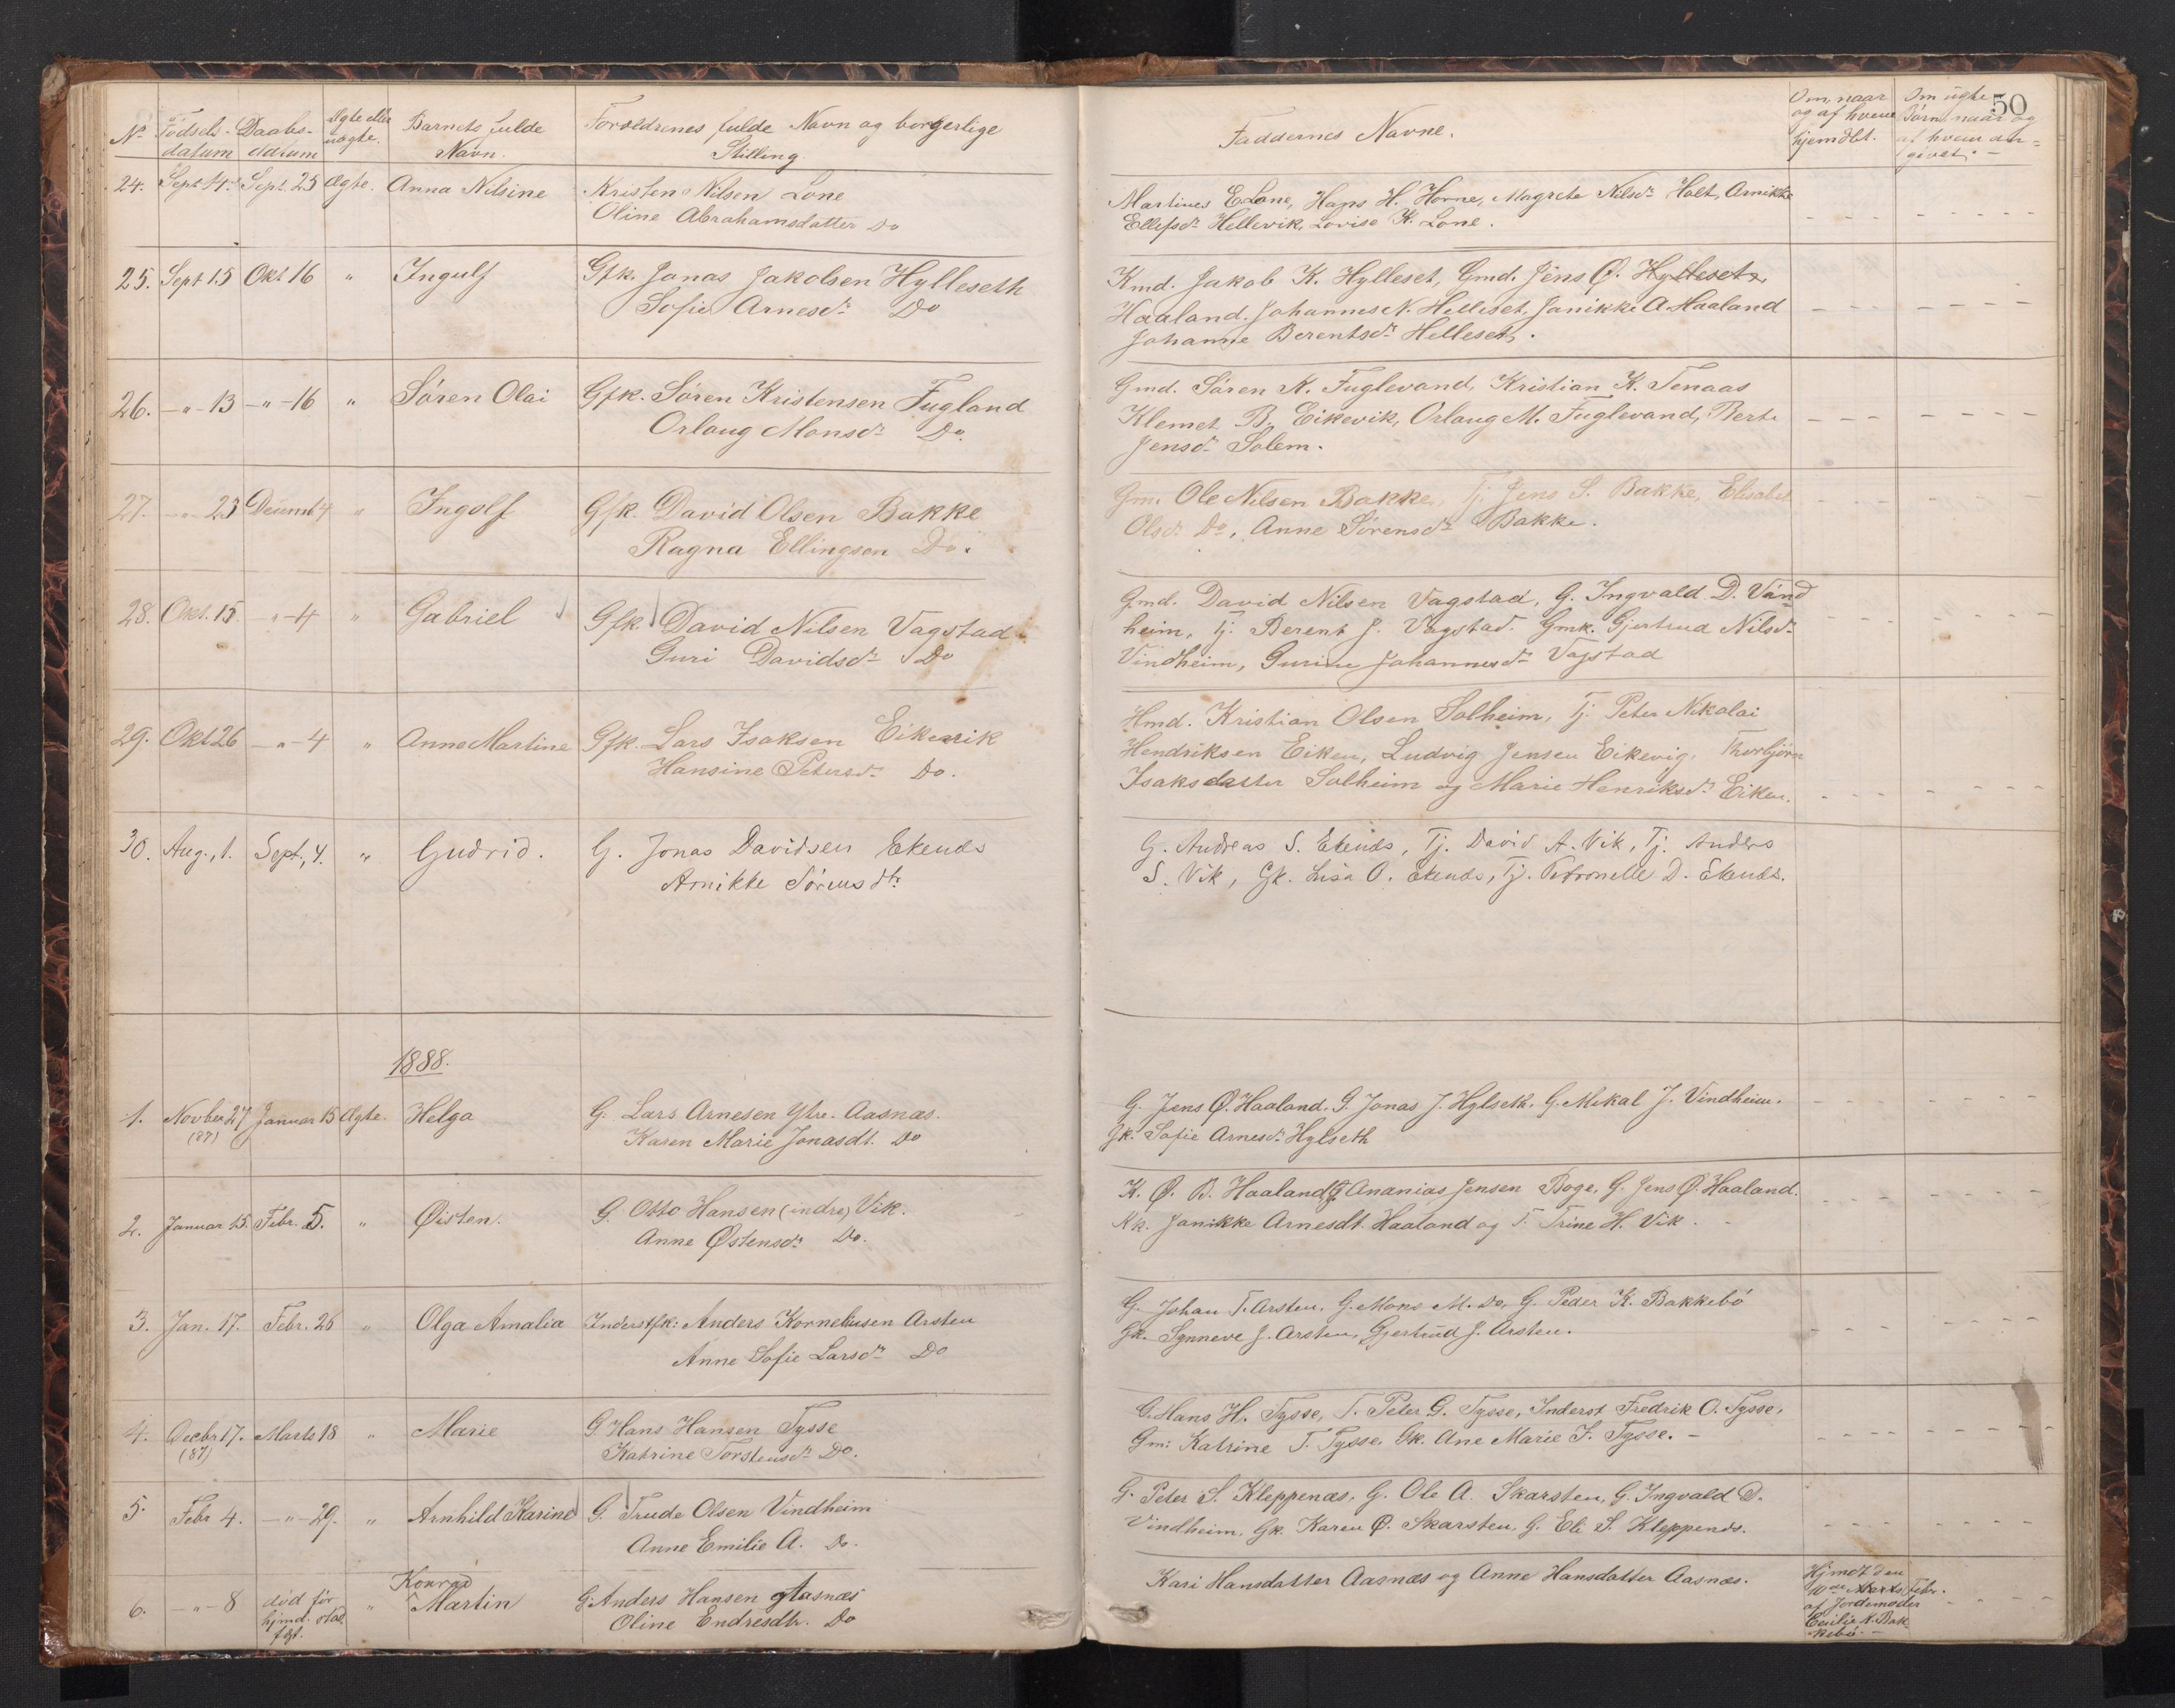 50
No Fødsels- Daabs- Ægte eller Barnets fulde Forældrenes fulde Navn og borgerlige Faddernes Navne. Om, naar Om uægte
datum datum uægte. Navn. Stilling. og af hvem Børn, naar og
hjemdøbt. af hvem an=
givet. —
24. Sept. 4. Sept. 25 Ægte. Anna Nilsine Kristen Nilsen Lone Martines E Lone, Hans H. Horne, Magrete Nilsdr Holt, Arnikke
Oline Abrahamsdatter Do Ellefsdr Hellevik, Lovise K. Lone.
25. Sept 15 Okt 16 " Ingulf Gfk. Jonas Jakobsen Hylleseth Kmd. Jakob K. Hylleset, Gmd. Jens Ø. Hylleset
Sofie Arnesdr Do Haaland. Johannes N. Helleset, Janikke A. Haaland
Johanne Berentsdr Helleset.
26. –"–13 –"–16 " Søren Olai Gfk. Søren Kristensen Fugland Gmd. Søren N. Fuglevand, Kristian K. Tenaas
Orlaug Monsdr Do. Klemet B. Eikevik, Orlaug M. Fuglevand, Berte
Jensdr Solem.
27. –"–23 Decemb 4 " Ingolf Gfk. David Olsen Bakke Gm. Ole Nilsen Bakke, Tj. Jens S. Bakke, Elisabet
Ragna Ellingsen Do. Olsdr Do, Anne Sørensdr Bakke.
28. Okt. 15. –"–4 " Gabriel Gfk. David Nilsen Vagstad Gmd. David Nilsen Vagstad, G. Ingvald D. Vind
Guri Davidsdr Do heim, Tj. Berent J. Vagstad. Gmk. Gjertrud Nilsdr
Vindheim, Gurine Johannesdr Vagstad
29. Okt 26 –"–4 " Anne Martine Gfk. Lars Isaksen Eikevik Hmd. Kristian Olsen Solheim, Tj. Peter Nikolai
Hansine Petersdr Do. Hendriksen Eiken, Ludvig Jensen Eikevig, Thorbjørn
Isaksdatter Solheim og Marie Henriksdr Eiken.
30. Aug., 1. Sept., 4. " Gudrid. G. Jonas Davidsen Ekenæs G. Andreas S. Ekenæs, Tj. David A. Vik, Tj. Anders
Arnikke Sørensdtr. S. Vik, Gk. Lisa O. Ekenæs, Tj. Petronelle D. Ekenæs.
1888.
1. Novber 27 Januar 15 Ægte. Helga G. Lars Arnesen Ytre. Aasnæs. G. Jens Ø. Haaland. G. Jonas J. Hylseth. G. Mikal J. Vindheim.
(87) Karen Marie Jonasdt. Do Gk. Sofie Arnesdr Hylseth
2. Januar 15. Febr. 5. " Øisten. G. Otto Hansen (indre) Vik. K. Ø. B. Haaland, Ananias Jensen Boge, G. Jens Ø. Haaland.
Anne Østensdr Do. Kk. Janikke Arnesdt. Haaland og T. Trine H. Vik.
3. Jan. 17. Febr. 26 " Olga Amalia Inderstfk: Anders Korneliusen Arsten G. Johan T. Arsten, G. Mons M. Do, G. Peder K. Bakkebø
Anne Sofie Larsdr Do Gk. Synneve J. Arsten, Gjertrud J. Arsten.
4. Decbr 17. Marts 18 " Marie G. Hans Hansen Tysse G. Hans H. Tysse, T. Peter G. Tysse, Inderst Fredrik O. Tysse,
(87) Katrine Torstensdr Do. Gm: Katrine T. Tysse, Gk. Ane Marie F. Tysse. –
5. Febr 4. –"–29. " Arnhild Karine G. Trude Olsen Vindheim G. Peter S. Kleppenæs, G. Ole A. Skarsten, G. Ingvald D.
Anne Emilie A. Do. Vindheim, Gk. Karen Ø. Skarsten, G. Eli S. Kleppenæs.
6. –"–8 død før " Konrad Martin G. Anders Hansen Aasnæs Kari Hansdatter Aasnæs og Anne Hansdatter Aasnæs. Hjmdt den
hjmd. Oline Endresdtr. Do 10de Marts Febr.
af Jordemoder
Cecilie K. Bak
kebø. –